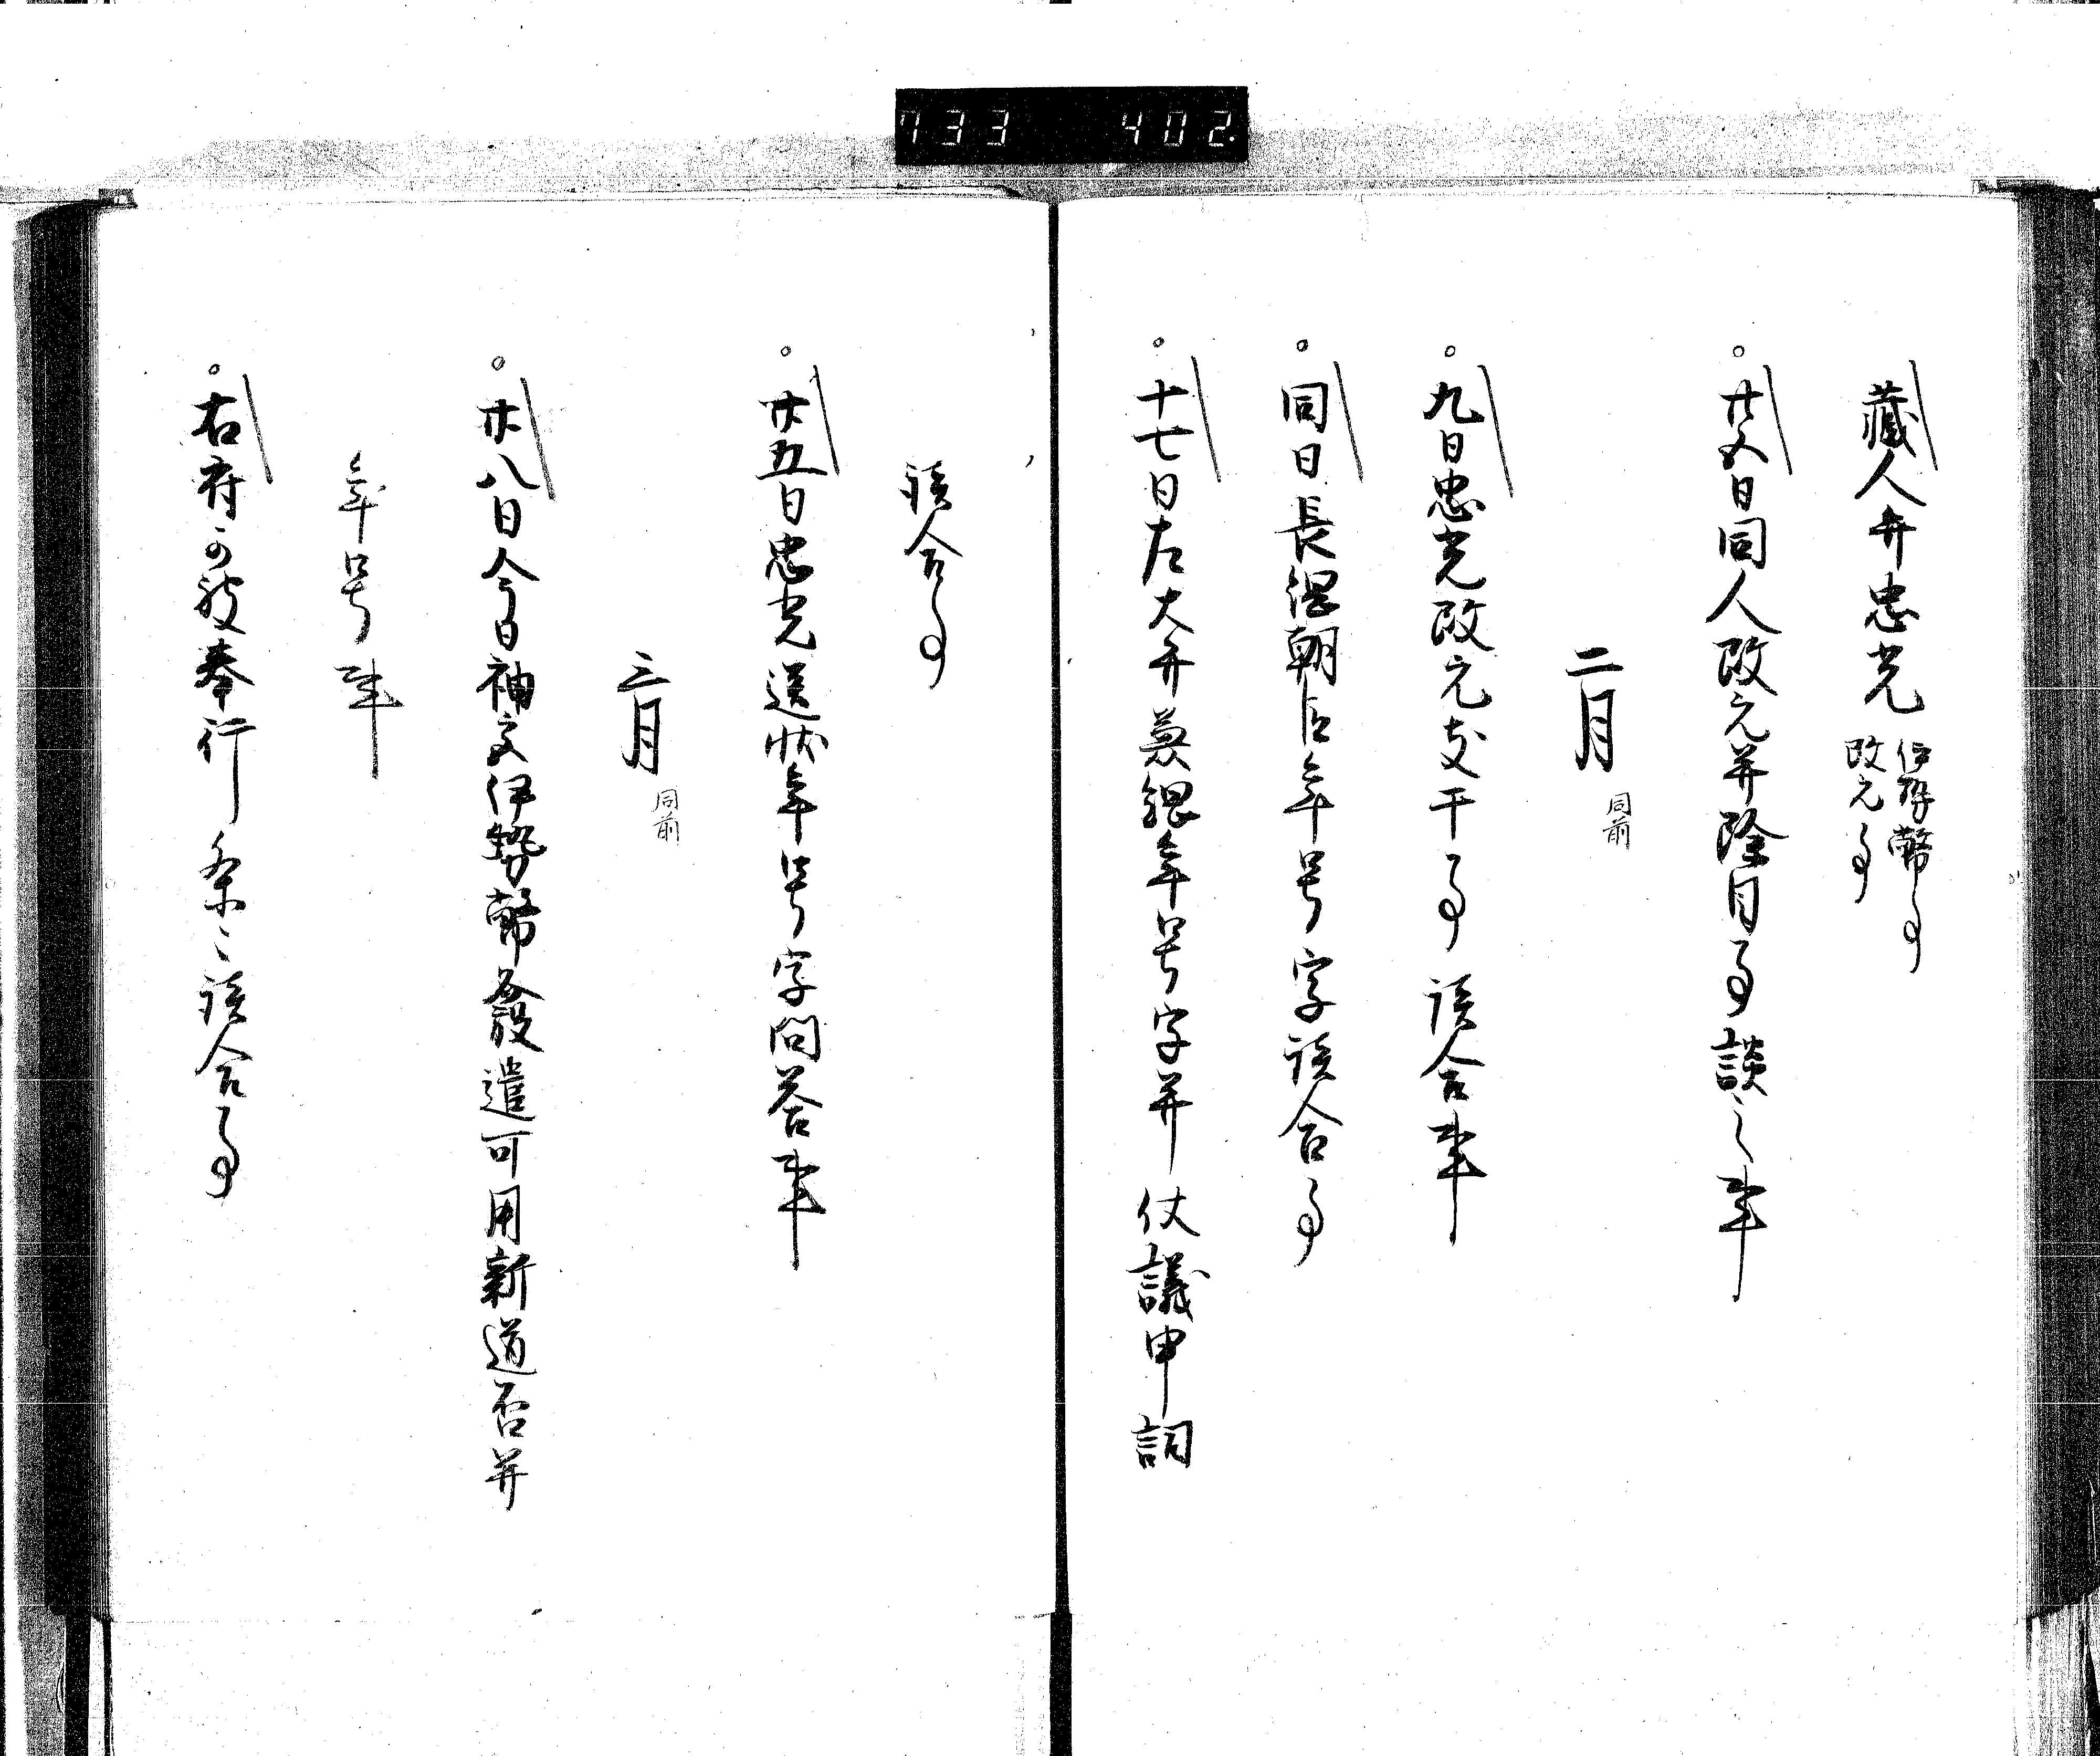 733 402
藏人弁忠光 伊勢幣事
改元事
廿五日同人改元并除目事談之事
二月 同前
九日忠光改元支干事談合事
同日長綱朝臣年号字談合事
十七日左大弁兼綱年号字并仗議申詞
談合事
廿五日忠光送状年号字問答事
三月 同前
廿八日今日神文伊勢幣發遣可用新道否并
年号事
右府可被奉行条々談合事